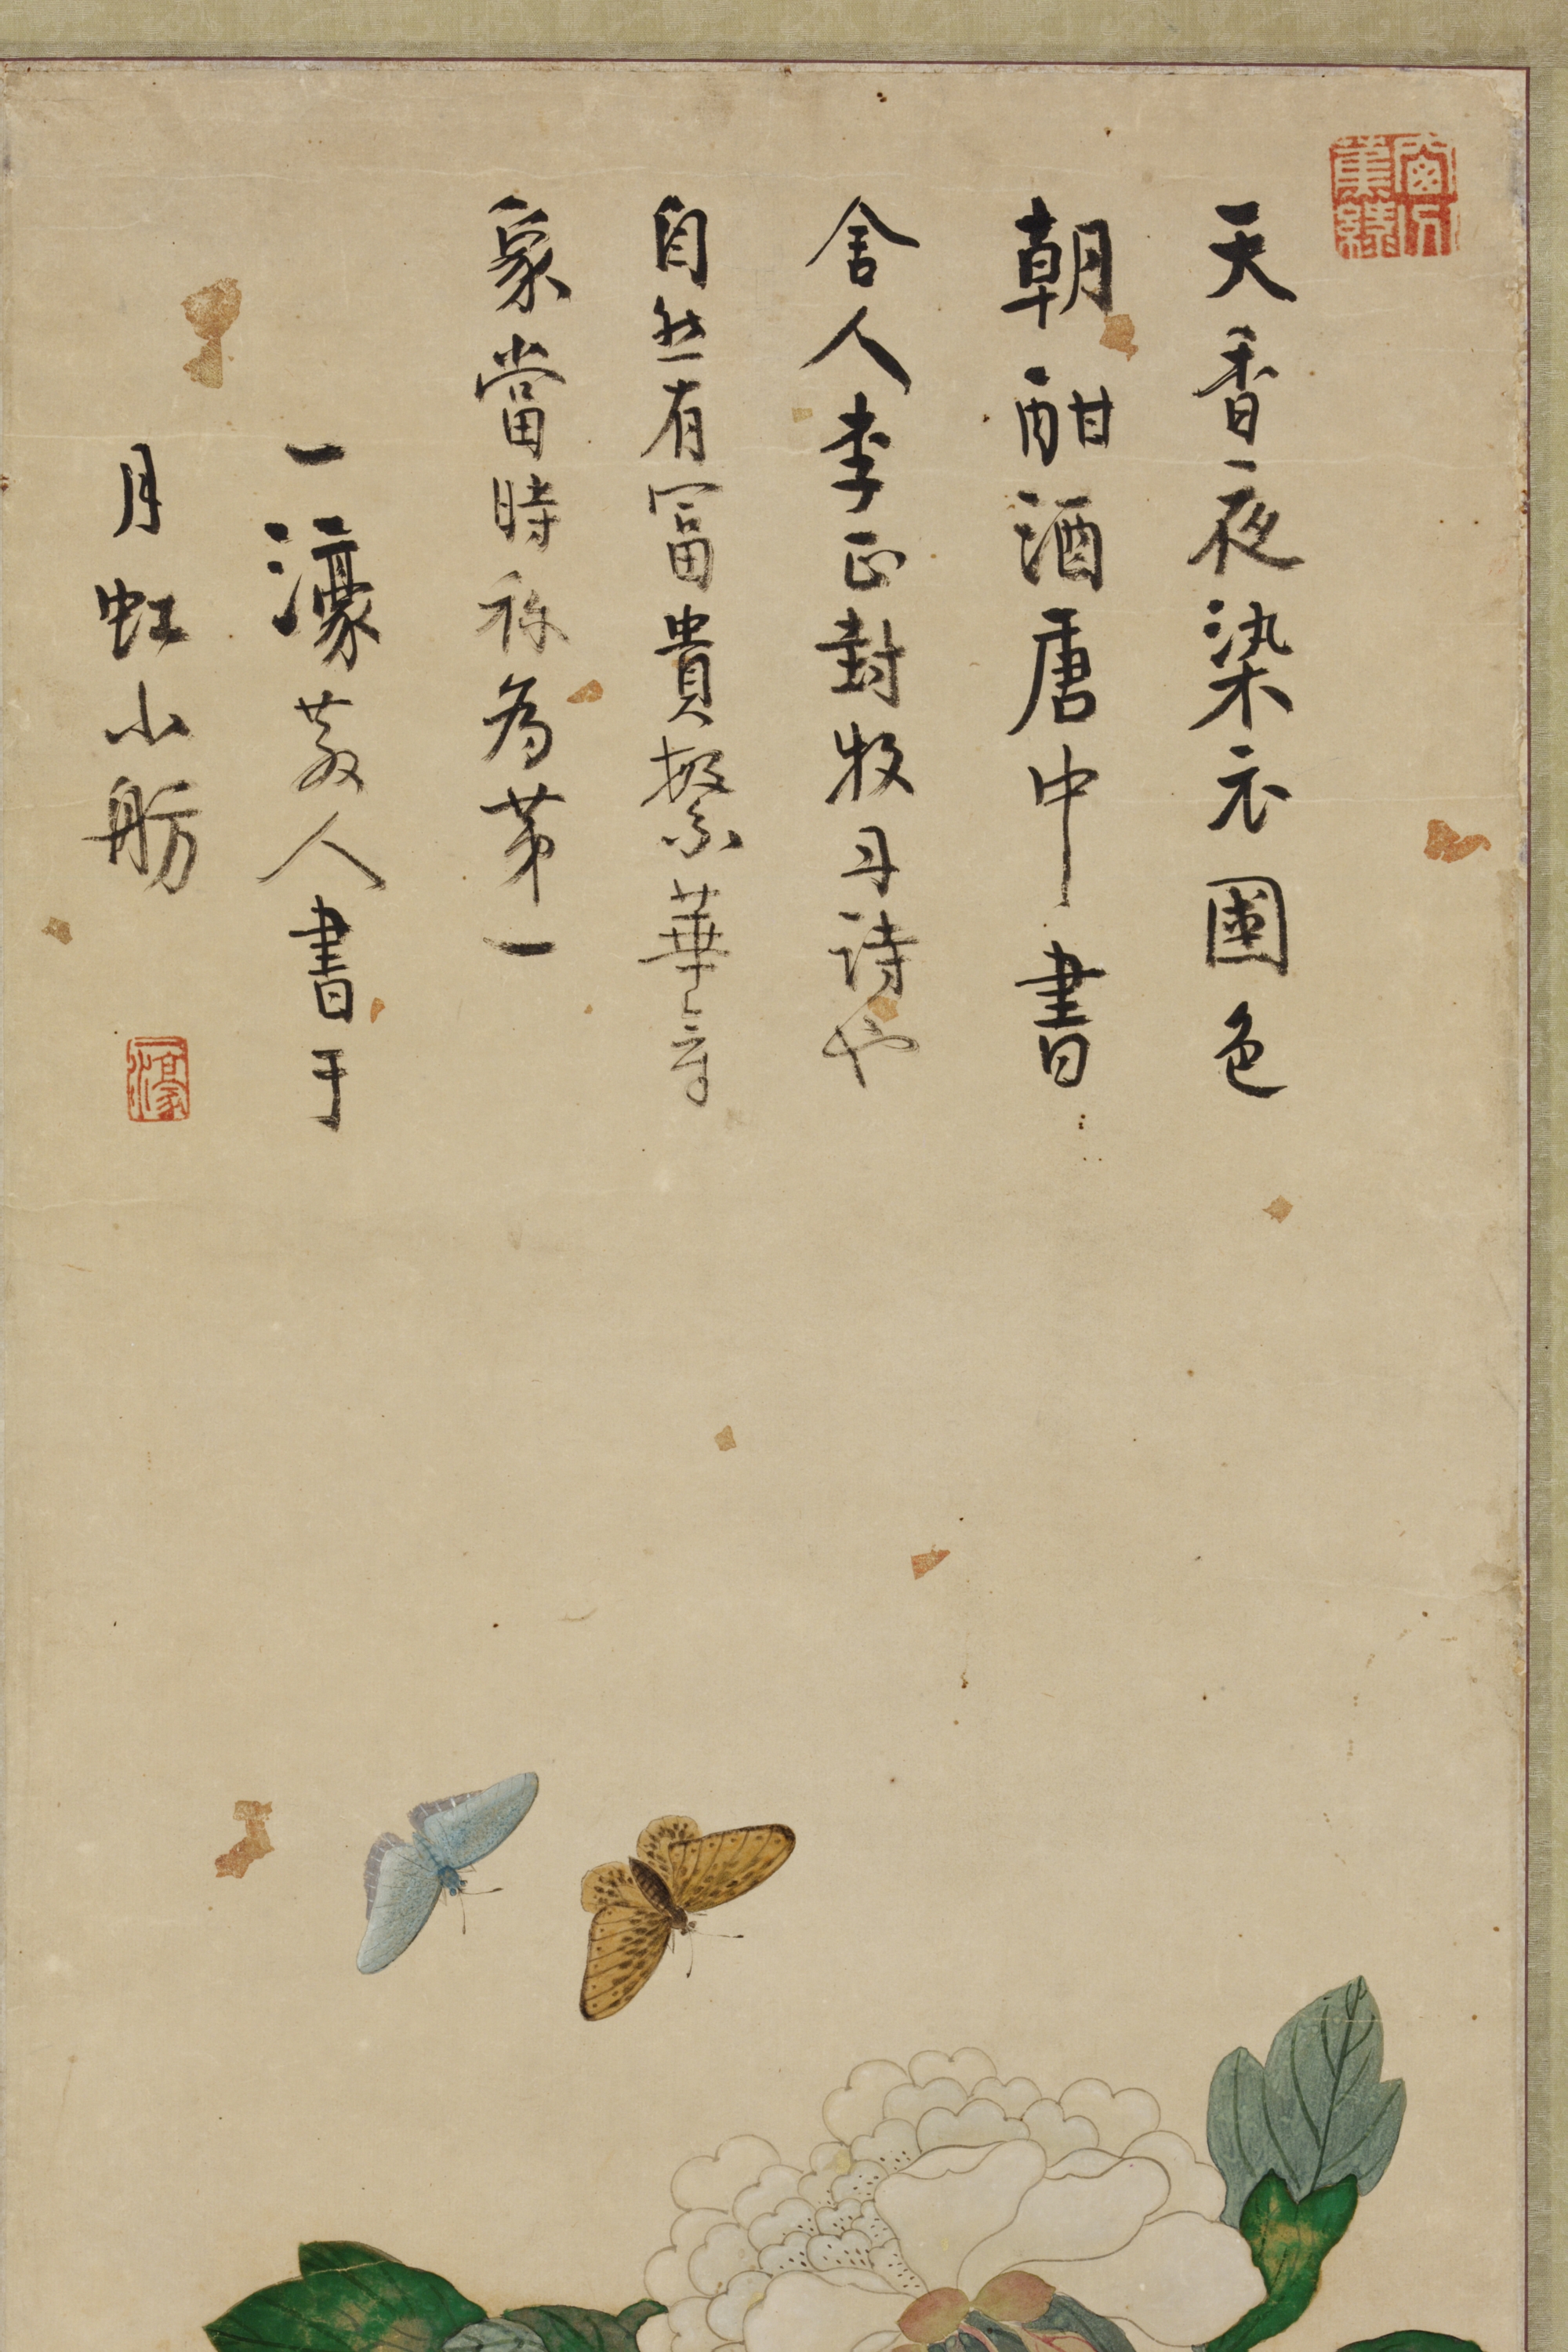 天香夜染衣國色
朝酣酒唐中書
舍人李正封牧丹詩也
自然有富貴繁華氣
象當時称為第一
一濠散人書于
月虹小舫